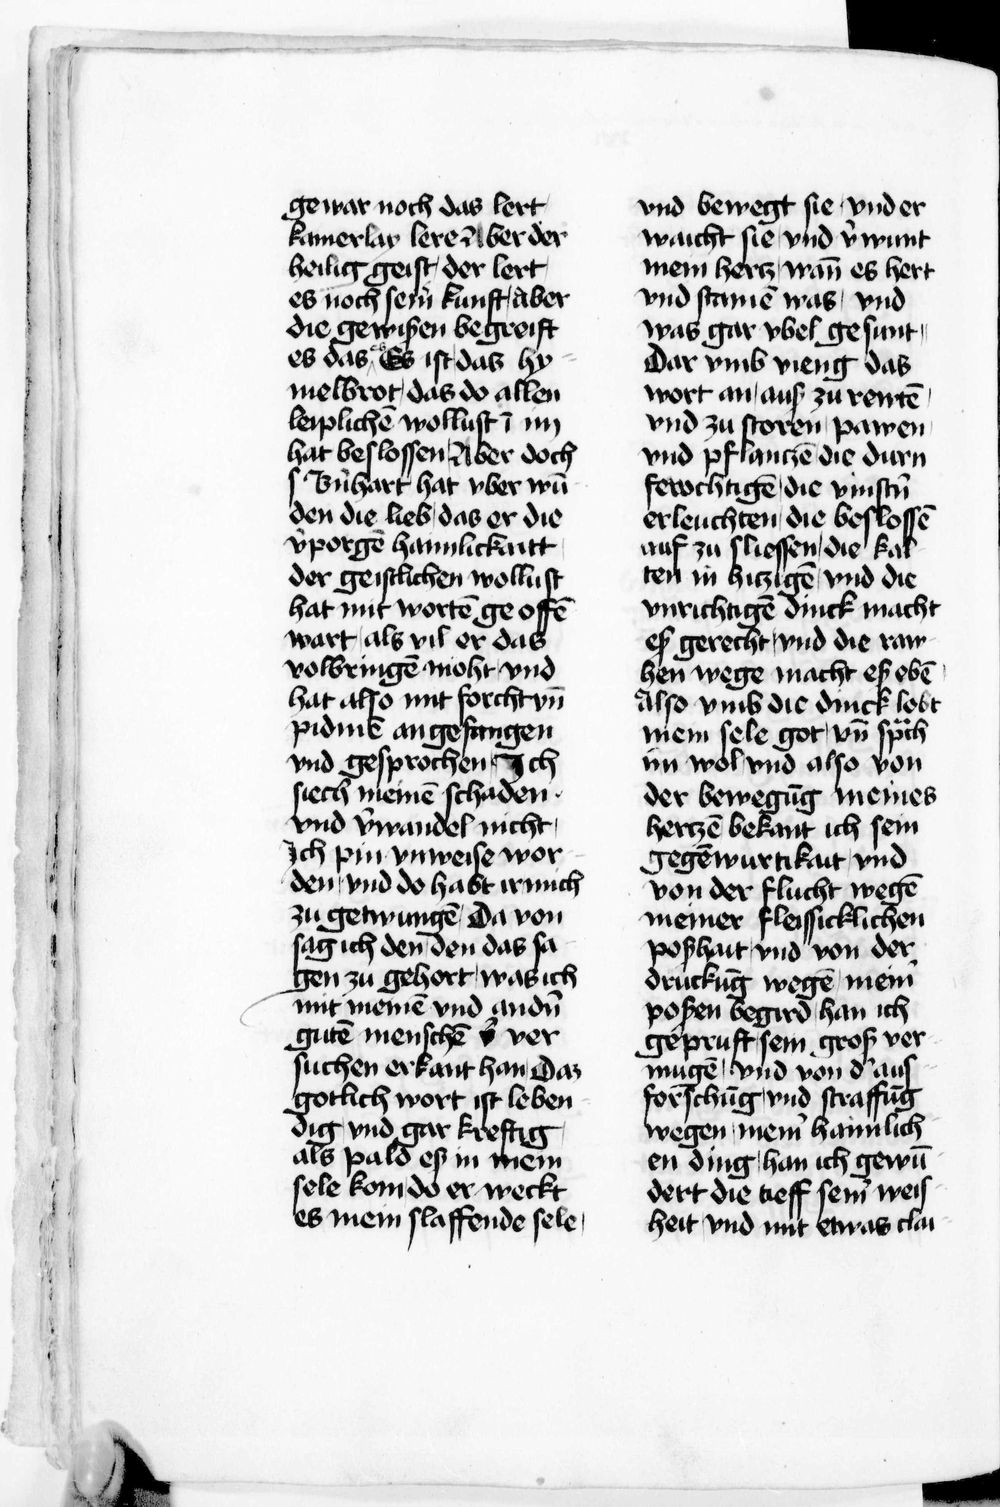 gewar noch das lert
kainerlay lere Aber der
heilig geist der lert
es noch sein̄ kunst Aber
die gewissen begreift
es das Es ist das hy-
melbrot das do allen
leiplichē wollust ī im
hat beslossen Aber doch
s B̄nhart hat vber wū-
den die lieb das er die
v̄porgē haimlickaitt
der geistlichen wollust
hat mit wortē ge offē
wart als vil er das
volbringē moht vnd
hat also mit forcht vn̄
pidmē angefangen
vnd gesprochen Ich
siech meinē schaden
vnd v̄wandel nicht
Ich pin vnweise wor-
den vnd do habt ir mich
zu getwungē Da von
sag ich den den das sa-
gen zu gehort was ich
mit meinē vnd andn̄
gutē menschē ver
suchen erkant han Daz
gotlich wort ist leben-
dig vnd gar kreftig
als pald eß in mein
sele kom do er weckt
es mein slaffende sele
vnd bewegt sie vnd er
waicht sie vnd v̄wunt
mein hertz wan̄ es hert
vnd stainē was vnd
was gar vbel gesunt
Dar vmb vieng das
wort an auß zu rewtē
vnd zu storen pawen
vnd pflantzē die durn
fewchtigē die vinstn̄
erleuchten die beslossē
auf zu sliessen die kal-
ten in hitzigē vnd die
vnrichtigē dinck macht
eß gerecht vnd die raw-
hen wege macht eß ebē
Also vmb die dinck lobt
mein sele got vn̄ sprach
im wol vnd also von
der bewegūg meines
hertzē bekant ich sein
gegēwurtikait vnd
von der flucht wegē
meiner fleissicklichen
poßhait vnd von der
druckūg wegē mein̄
poßen begird han ich
gepruft sein groß ver-
mugē vnd von d' aus-
forschūg vnd straffūg
wegen mein̄ haimlich-
en ding han ich gewū-
dert die tieff sein̄ weis-
heit vnd mit etwas clai-